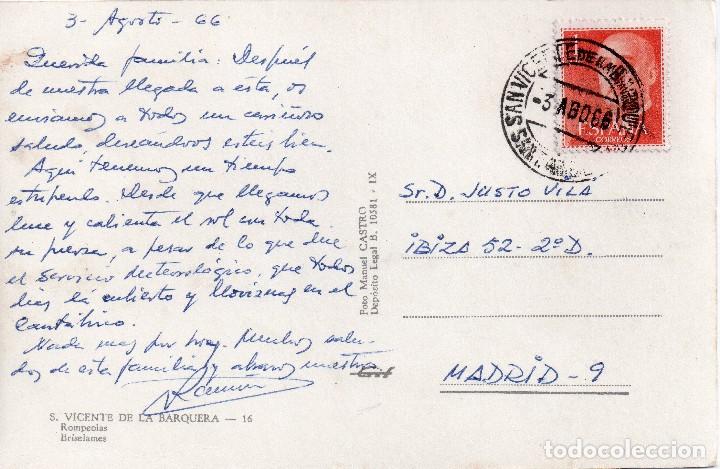 3- Agosto - 66
Querida familia: Después
de nuestra llegada a esta, os
enviamos a todos un cariñoso
saludo, deseándoos estéis bien.
Aquí tenemos un tiempo
estupendo. Desde que llegamos
luce y calienta el sol con toda
su fuerza, a pesar de lo que dice
el servicio meteorológico, que todos
días la cubierto y lloviznas en el
Cantábrico.
Nada mas por hoy. Muchos salu-
dos de esta familia y abrazos nuestros
Ramón
S. VICENTE DE LA BARQUERA — 16
Rompeolas
Briselames
Foto Manuel CASTRO
Depósito Legal B. 10581 - IX
SAN VICENTE DE LA BARQUERA
-3 AGO 66
1
ESPAÑA
CORREOS
Sr. D. JUSTO VILA
IBIZA 52- 2º D.
MADRID - 9
todocoleccion